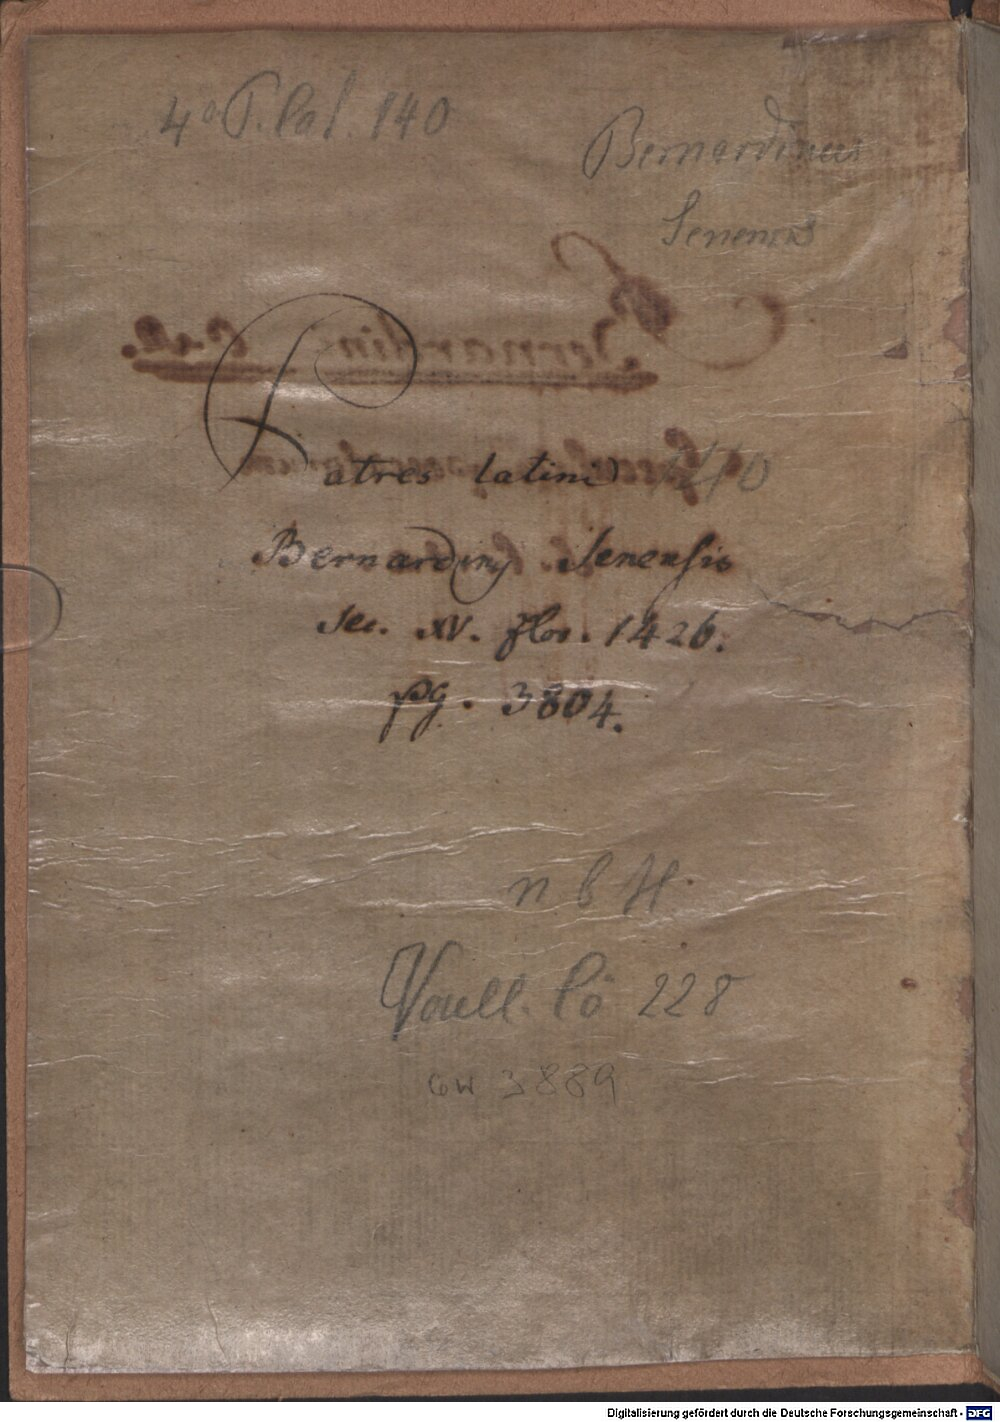 4° P. lat. 140
Bernardinus
Senensis
Patres latini 140
Bernardinus Senensis
sec. XV. flor. 1426.
pg. 3804.
n b H
Voull. Cö 228
GW 3889
Digitalisierung gefördert durch die Deutsche Forschungsgemeinschaft - DFG